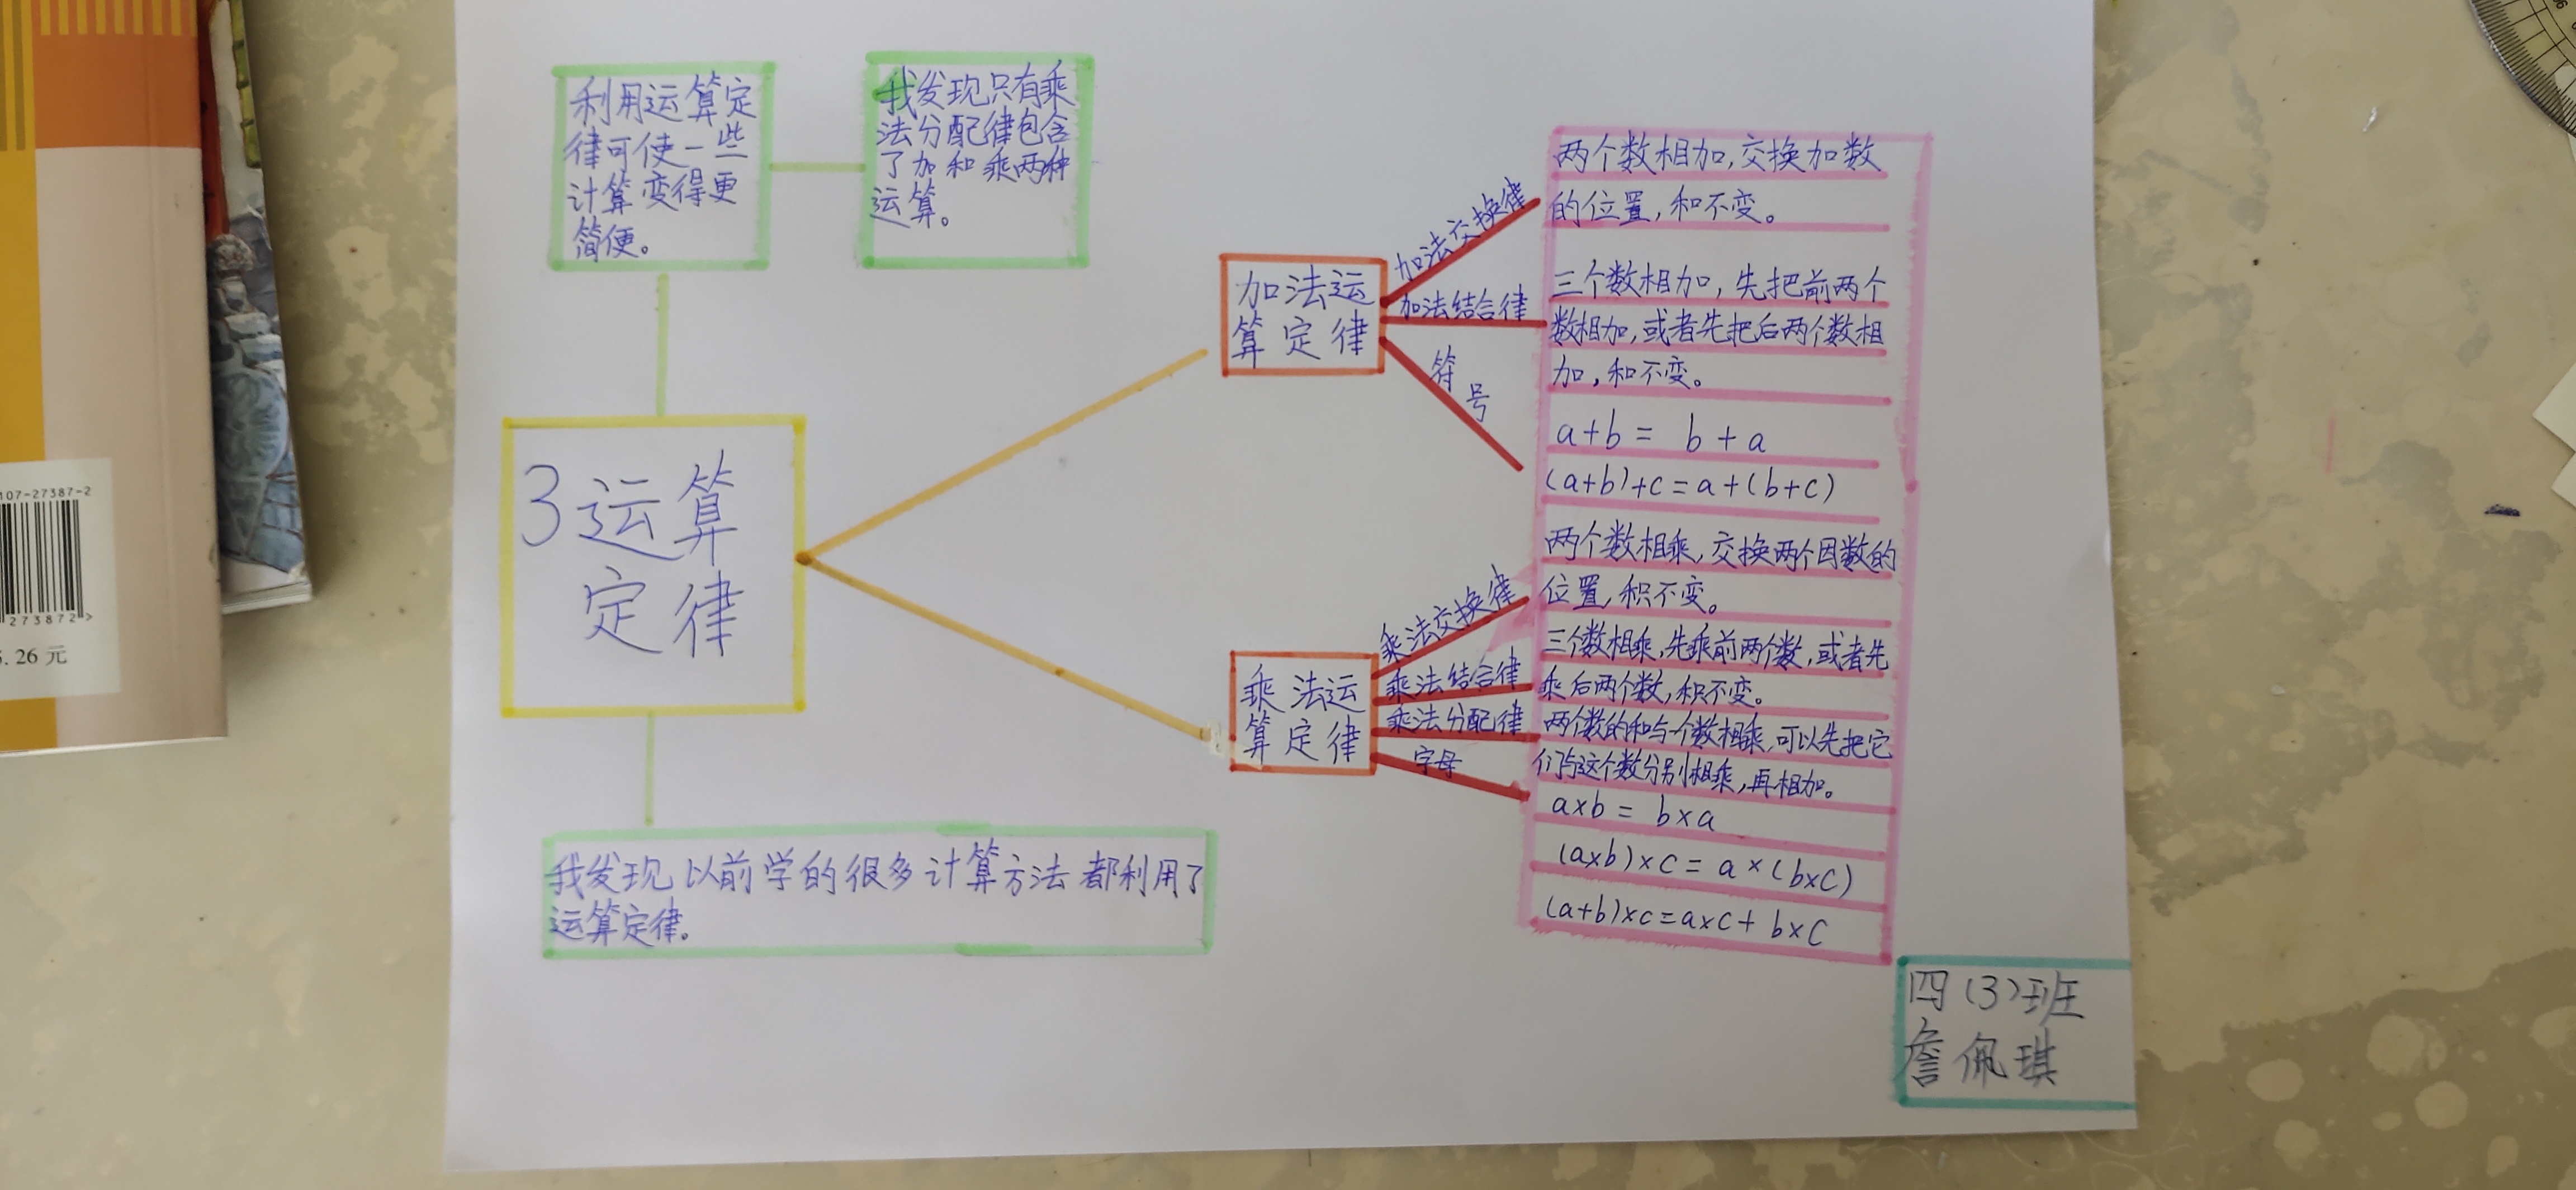 107-27387-2
273872>
5.26元
利用运算定
律可使一些
计算变得更
简便。
我发现只有乘
法分配律包含
了加和乘两种
运算。
3运算
定律
我发现以前学的很多计算方法都利用了
运算定律。
加法运
算定律
加法交换律
加法结合律
符号
乘法运
算定律
乘法交换律
乘法结合律
乘法分配律
字母
两个数相加,交换加数
的位置,和不变。
三个数相加,先把前两个
数相加,或者先把后两个数相
加,和不变。
a+b=b+a
(a+b)+c=a+(b+c)
两个数相乘,交换两个因数的
位置,积不变。
三个数相乘,先乘前两个数,或者先
乘后两个数,积不变。
两个数的和与个数相乘,可以先把它
们与这个数分别相乘,再相加。
a×b=b×a
(a×b)×c=a×(b×c)
(a+b)×c=a×c+b×c
四(3)班
詹佩琪